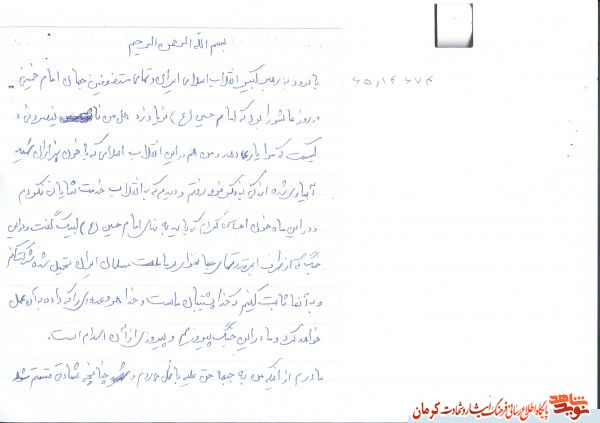 بسم الله الرحمن الرحیم
با درود به رهبر کبیر انقلاب اسلامی ایران و تمامی مستضعفین جهان امام خمینی
در روز عاشورا بود که امام حسین (ع) فریاد زد هل من ناصر ینصرونی
کیست که مرا یاری دهد و من هم در این انقلاب اسلامی که با خون هزاران شهید
آبیاری شده اندکی به فکر فرو رفتم و دیدم که به انقلاب خدمت شایان نکردم
و در این ماه خون احساس کردم که باید به ندای امام حسین (ع) لبیک گفت و در این
جنگ که از طرف ابرقدرتهای جهانخوار بر ما ملت مسلمان ایران تحمیل شده شرکت کنم
و به آنها ثابت کنیم که خدا پشتیبان ماست و خدا هر وعده‌ای را که داده به آن عمل
خواهد کرد و ما در این جنگ پیروزیم و پیروزی از آن اسلام است.
مادرم از اینکه من به جبهه حق علیه باطل می‌روم و چنانچه شهادت قسمتم شد
پایگاه اطلاع رسانی فرهنگ ایثار و شهادت کرمان
نوید شاهد